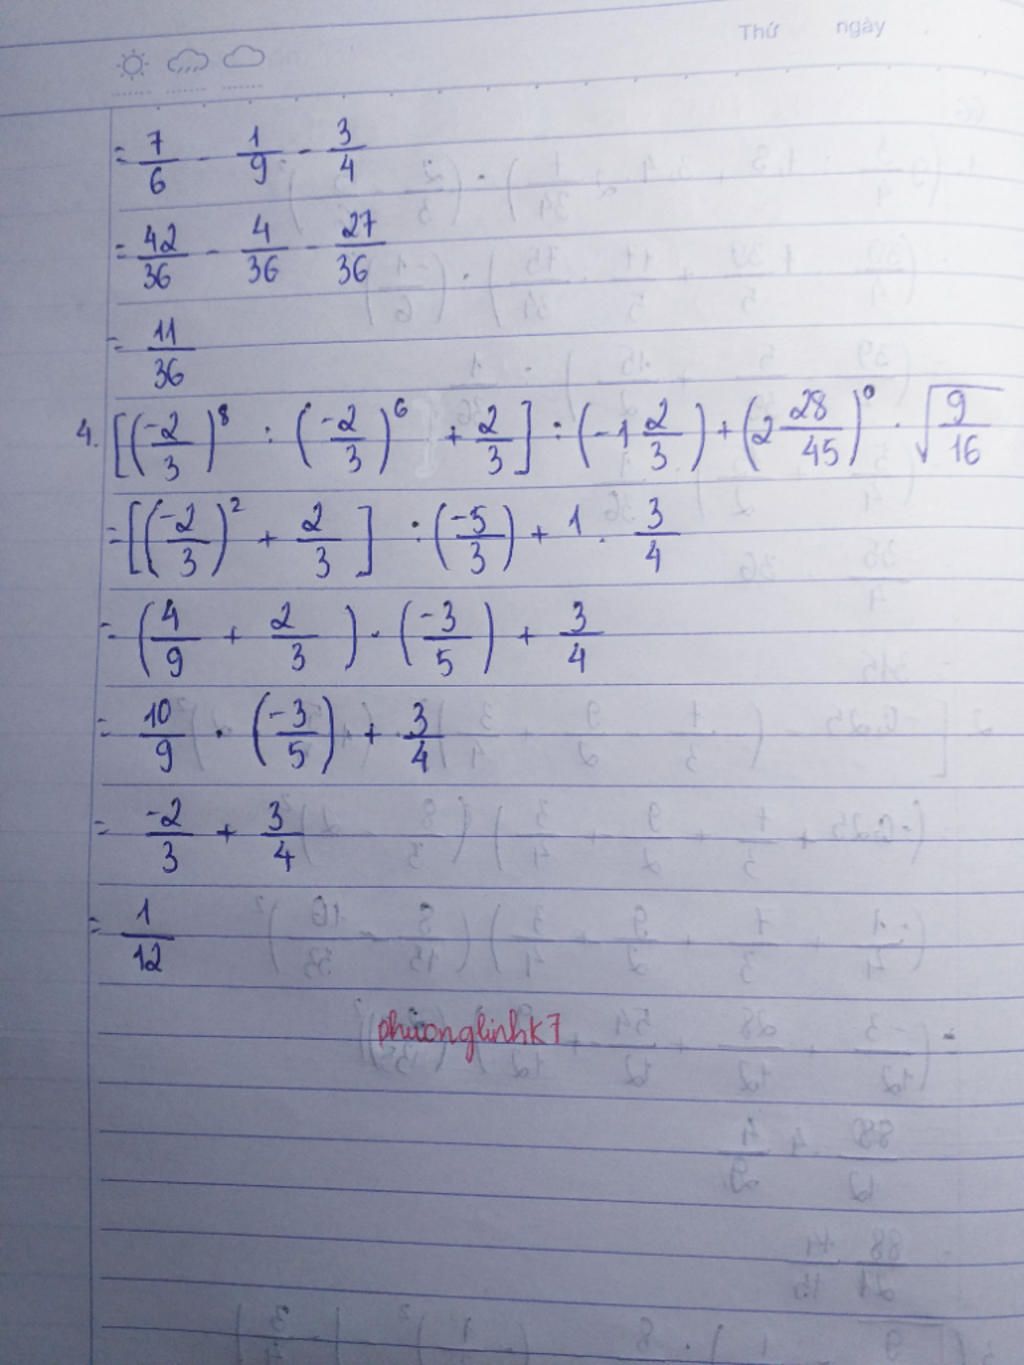 Thứ ngày
= 7/6 - 1/9 - 3/4
= 42/36 - 4/36 - 27/36
= 11/36
4. [(-2/3)^8 : (-2/3)^6 + 2/3] : (-1 2/3) + (2 28/45)^0 . √(9/16)
= [(-2/3)^2 + 2/3] : (-5/3) + 1 . 3/4
= (4/9 + 2/3) . (-3/5) + 3/4
= 10/9 . (-3/5) + 3/4
= -2/3 + 3/4
= 1/12
phuonglinhk7